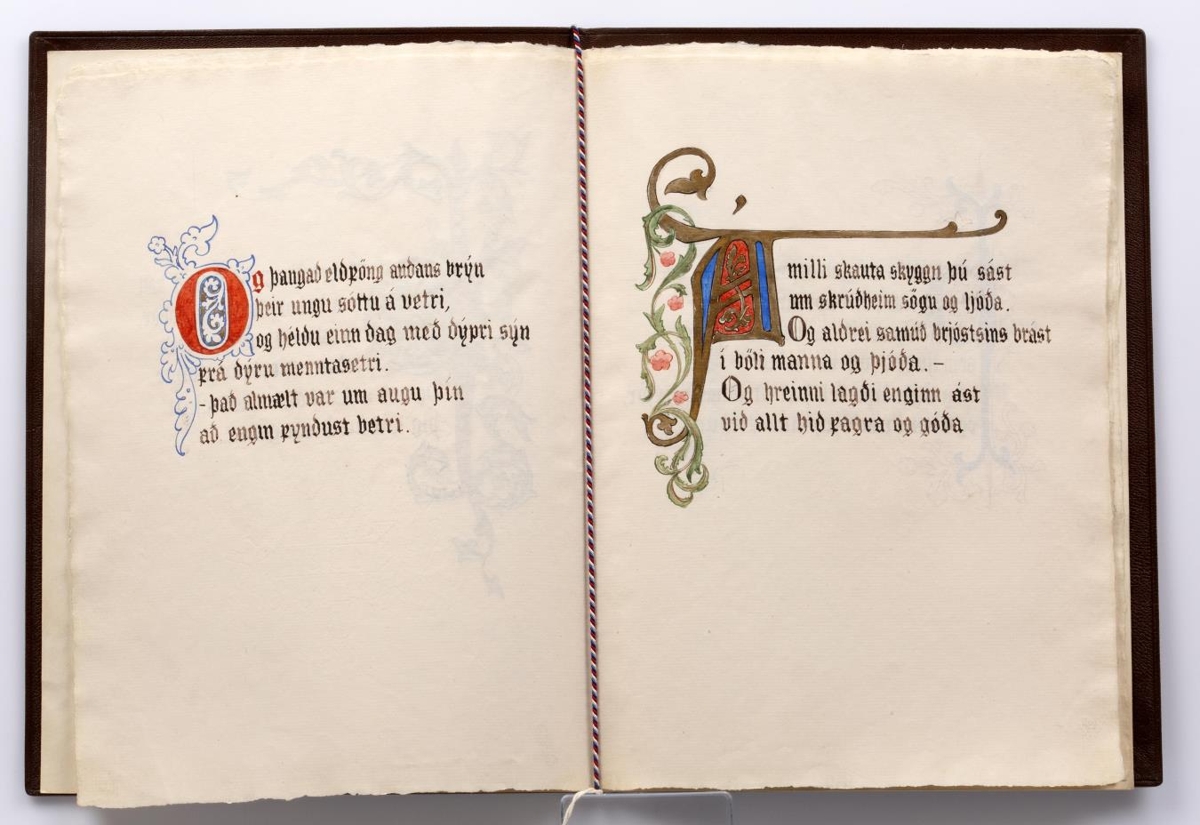 Og þangað eldföng andans brýn
þeir ungu sóttu á vetri,
og héldu einn dag með dýpri sýn
frá dýru menntasetri.
-það almælt var um augu þín
að engin fyndust betri.
Á milli skauta skyggn þú sást
um skrúðheim sögu og ljóða.
Og aldrei samúð brjóstsins brást
í böli manna og þjóða. –
Og hreinni lagði enginn ást
við allt hið fagra og góða